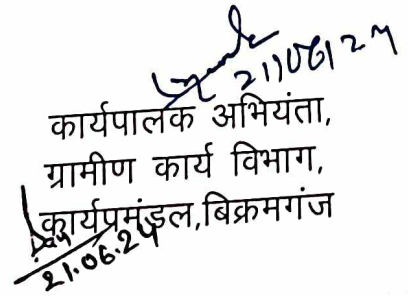 21/06/24
कार्यपालक अभियंता,
ग्रामीण कार्य विभाग,
कार्यप्रमंडल,बिक्रमगंज
21.06.24